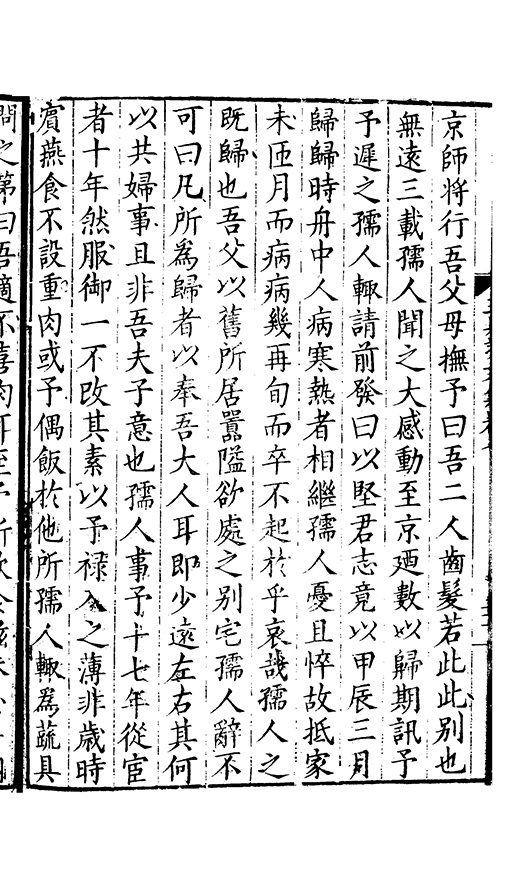 京師將行吾父母撫予曰吾二人齒髮若此此別也
無遠三載孺人聞之大感動至京廼數以歸期訊予
予遲之孺人輙請前發曰以堅君志竟以甲辰三月
歸歸時舟中人病寒熱者相繼孺人憂且悴故抵家
未匝月而病病幾再旬而卒不起於乎哀哉孺人之
既歸也吾父以舊所居囂隘欲處之别宅孺人辭不
可曰凡所爲歸者以奉吾大人耳即少遠左右其何
以共婦事且非吾夫子意也孺人事予十七年從宦
者十年然服御一不改其素以予禄入之薄非歳時
賓燕食不設重肉或予偶飯於他所孺人輙爲蔬具
問之第曰吾適不喜肉耳至予所欲